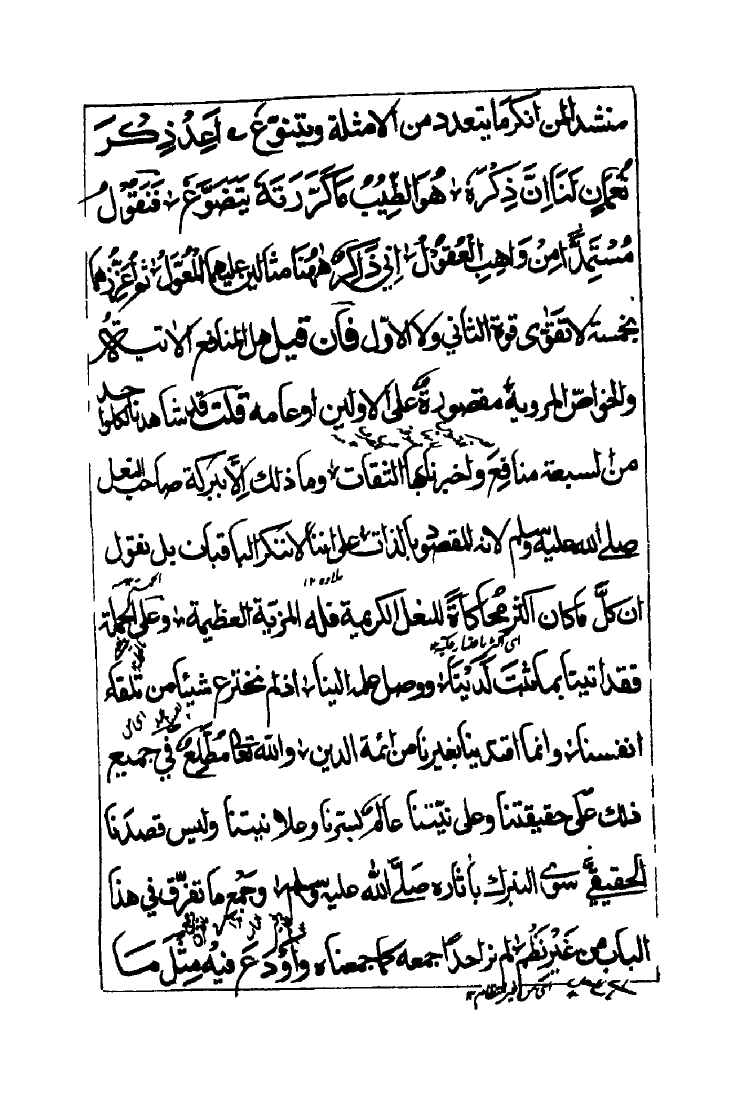 منشد المن انكر ما يتعدد من الامثلة ويتنوّع ؎ اَعِدْ ذِكْرَ
نُعْمَانٍ لَنَا اِنَّ ذِكْرَهٗ ؛ هُوَ الطِّيْبُ مَا كَرَّرَتَهٗ يَتَضَوَّعُ ؛ فَنَقُوْلُ
مُسْتَمِدًّا مِنْ وَاهِبِ الْعُقُوْلِ ؛ اِنِّي ذَاكِرٌ هٰهُنَا مثالين عليهما الْمُعَوَّلُ ؛ ثم اُعَزِّزُهما
بخمسة لا تَقْوٰى قوة الثاني ولا الاوّل فَاِن قيل هل المنافع الاتية
والخواصّ المروية مقصورةٌ على الاولين او عامه قلت قد شاهدنا
من السبعة منافع واخبرنا بها الثقات ؛ وما ذلك اِلَّا ببركة صاحب النعل
صلى الله عليه وسلم لانه المقصود بالذات على اننا لا ننكر الباقيات بل نقول
علاوه ١٢
ان كلَّ ما كان اكثر مُحَاكَاةً للنعل الكريمة فله المزيّة العظيمة ؛ وعلى الجملة
فقد اتينا بما ثبت لَدَيْنَا ؛ ووصل علمه الينا ؛ اذ لم نخترع شيئا من تلقاء
انفسنا ؛ وانما اقتدينا بغيرنا من ائمة الدين ؛ والله تعالى مُطَّلِعٌ في جميع
ذلك على حقيقتنا وعلى نيّتنا عالم لسرنا وعلانيتنا وليس قصدنا
الحقيقيّ سوى التبرك بآثاره صَلَّى الله عليه وسلم ؛ وجمع ما تفرّق في هذا
الباب من غَيْرِ نَظْمٍ ؛ لم نر احدًا جمعه كما جمعناه وَاَوْدَعَ فيه مِثْلَ مَا